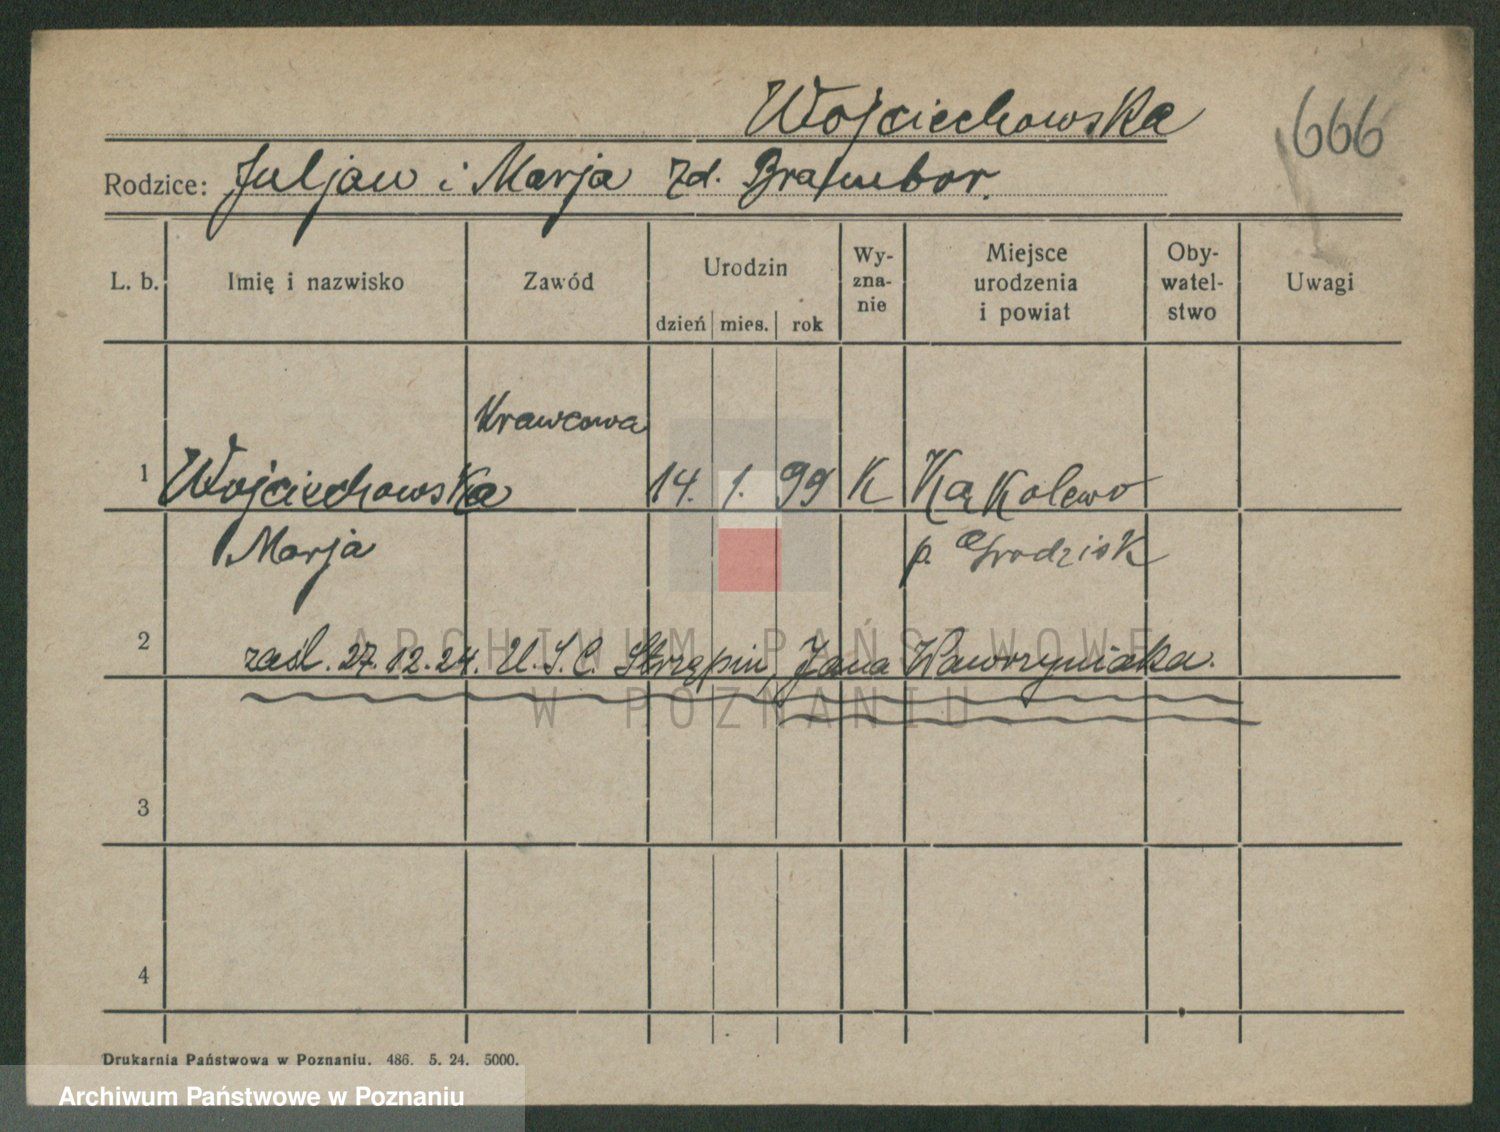 Wojciechowska
666
Rodzice: Juljan i Marja zd. Brambor.
L. b.
Imię i nazwisko
Zawód
Urodzin
dzień mies. rok
Wy-
zna-
nie
Miejsce
urodzenia
i powiat
Oby-
watel-
stwo
Uwagi
Krawcowa
1 Wojciechowska 14. 1. 99 K Kąkolewo
Marja p. Grodzisk
2 zaśl. 27.12.24. U.S.C. Strzępin, Jana Wawrzyniaka.
3
4
ARCHIWUM PAŃSTWOWE
W POZNANIU
Drukarnia Państwowa w Poznaniu. 486. 5. 24. 5000.
Archiwum Państwowe w Poznaniu